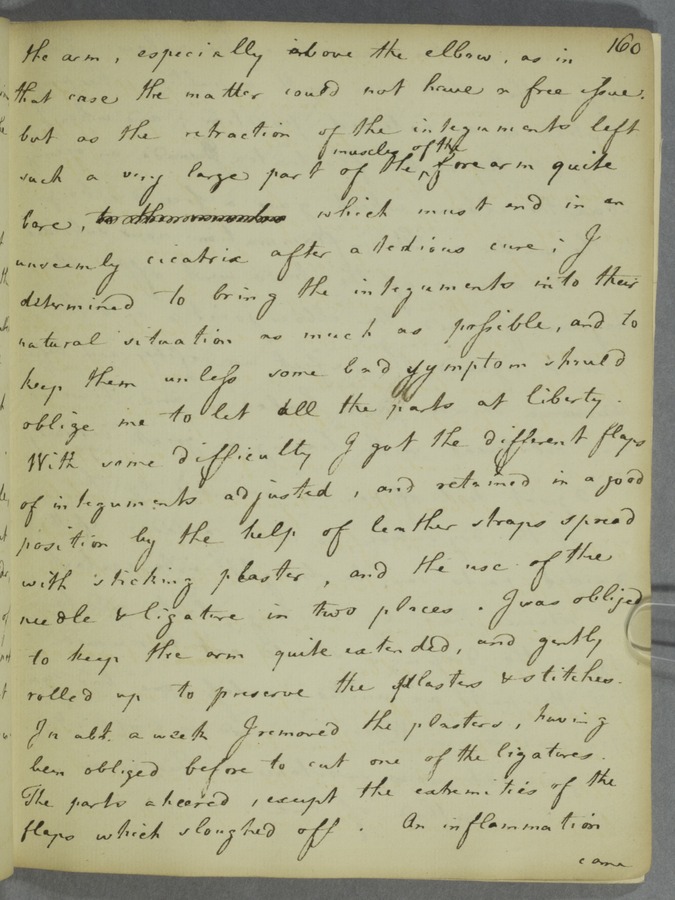 160
the arm, especially above the elbow, as in
that case the matter could not have a free issue.
but as the retraction of the integuments left
muscles of the
such a very large part of the forearm quite
bare, which must end in an
unseemly cicatrix after a tedious cure; I
determined to bring the integuments into their
natural situation as much as possible, and to
keep them unless some bad symptom should
oblige me to let all the parts at liberty.
With some difficulty I got the different flaps
of integuments adjusted, and retained in a good
position by the help of leather straps spread
with sticking plaster, and the use of the
needle & ligature in two places. I was obliged
to keep the arm quite extended, and gently
rolled up to preserve the plasters & stitches.
In abt. a week I removed the plasters, having
been obliged before to cut one of the ligatures.
The parts aheered, except the extremities of the
flaps which sloughed off. An inflammation
came